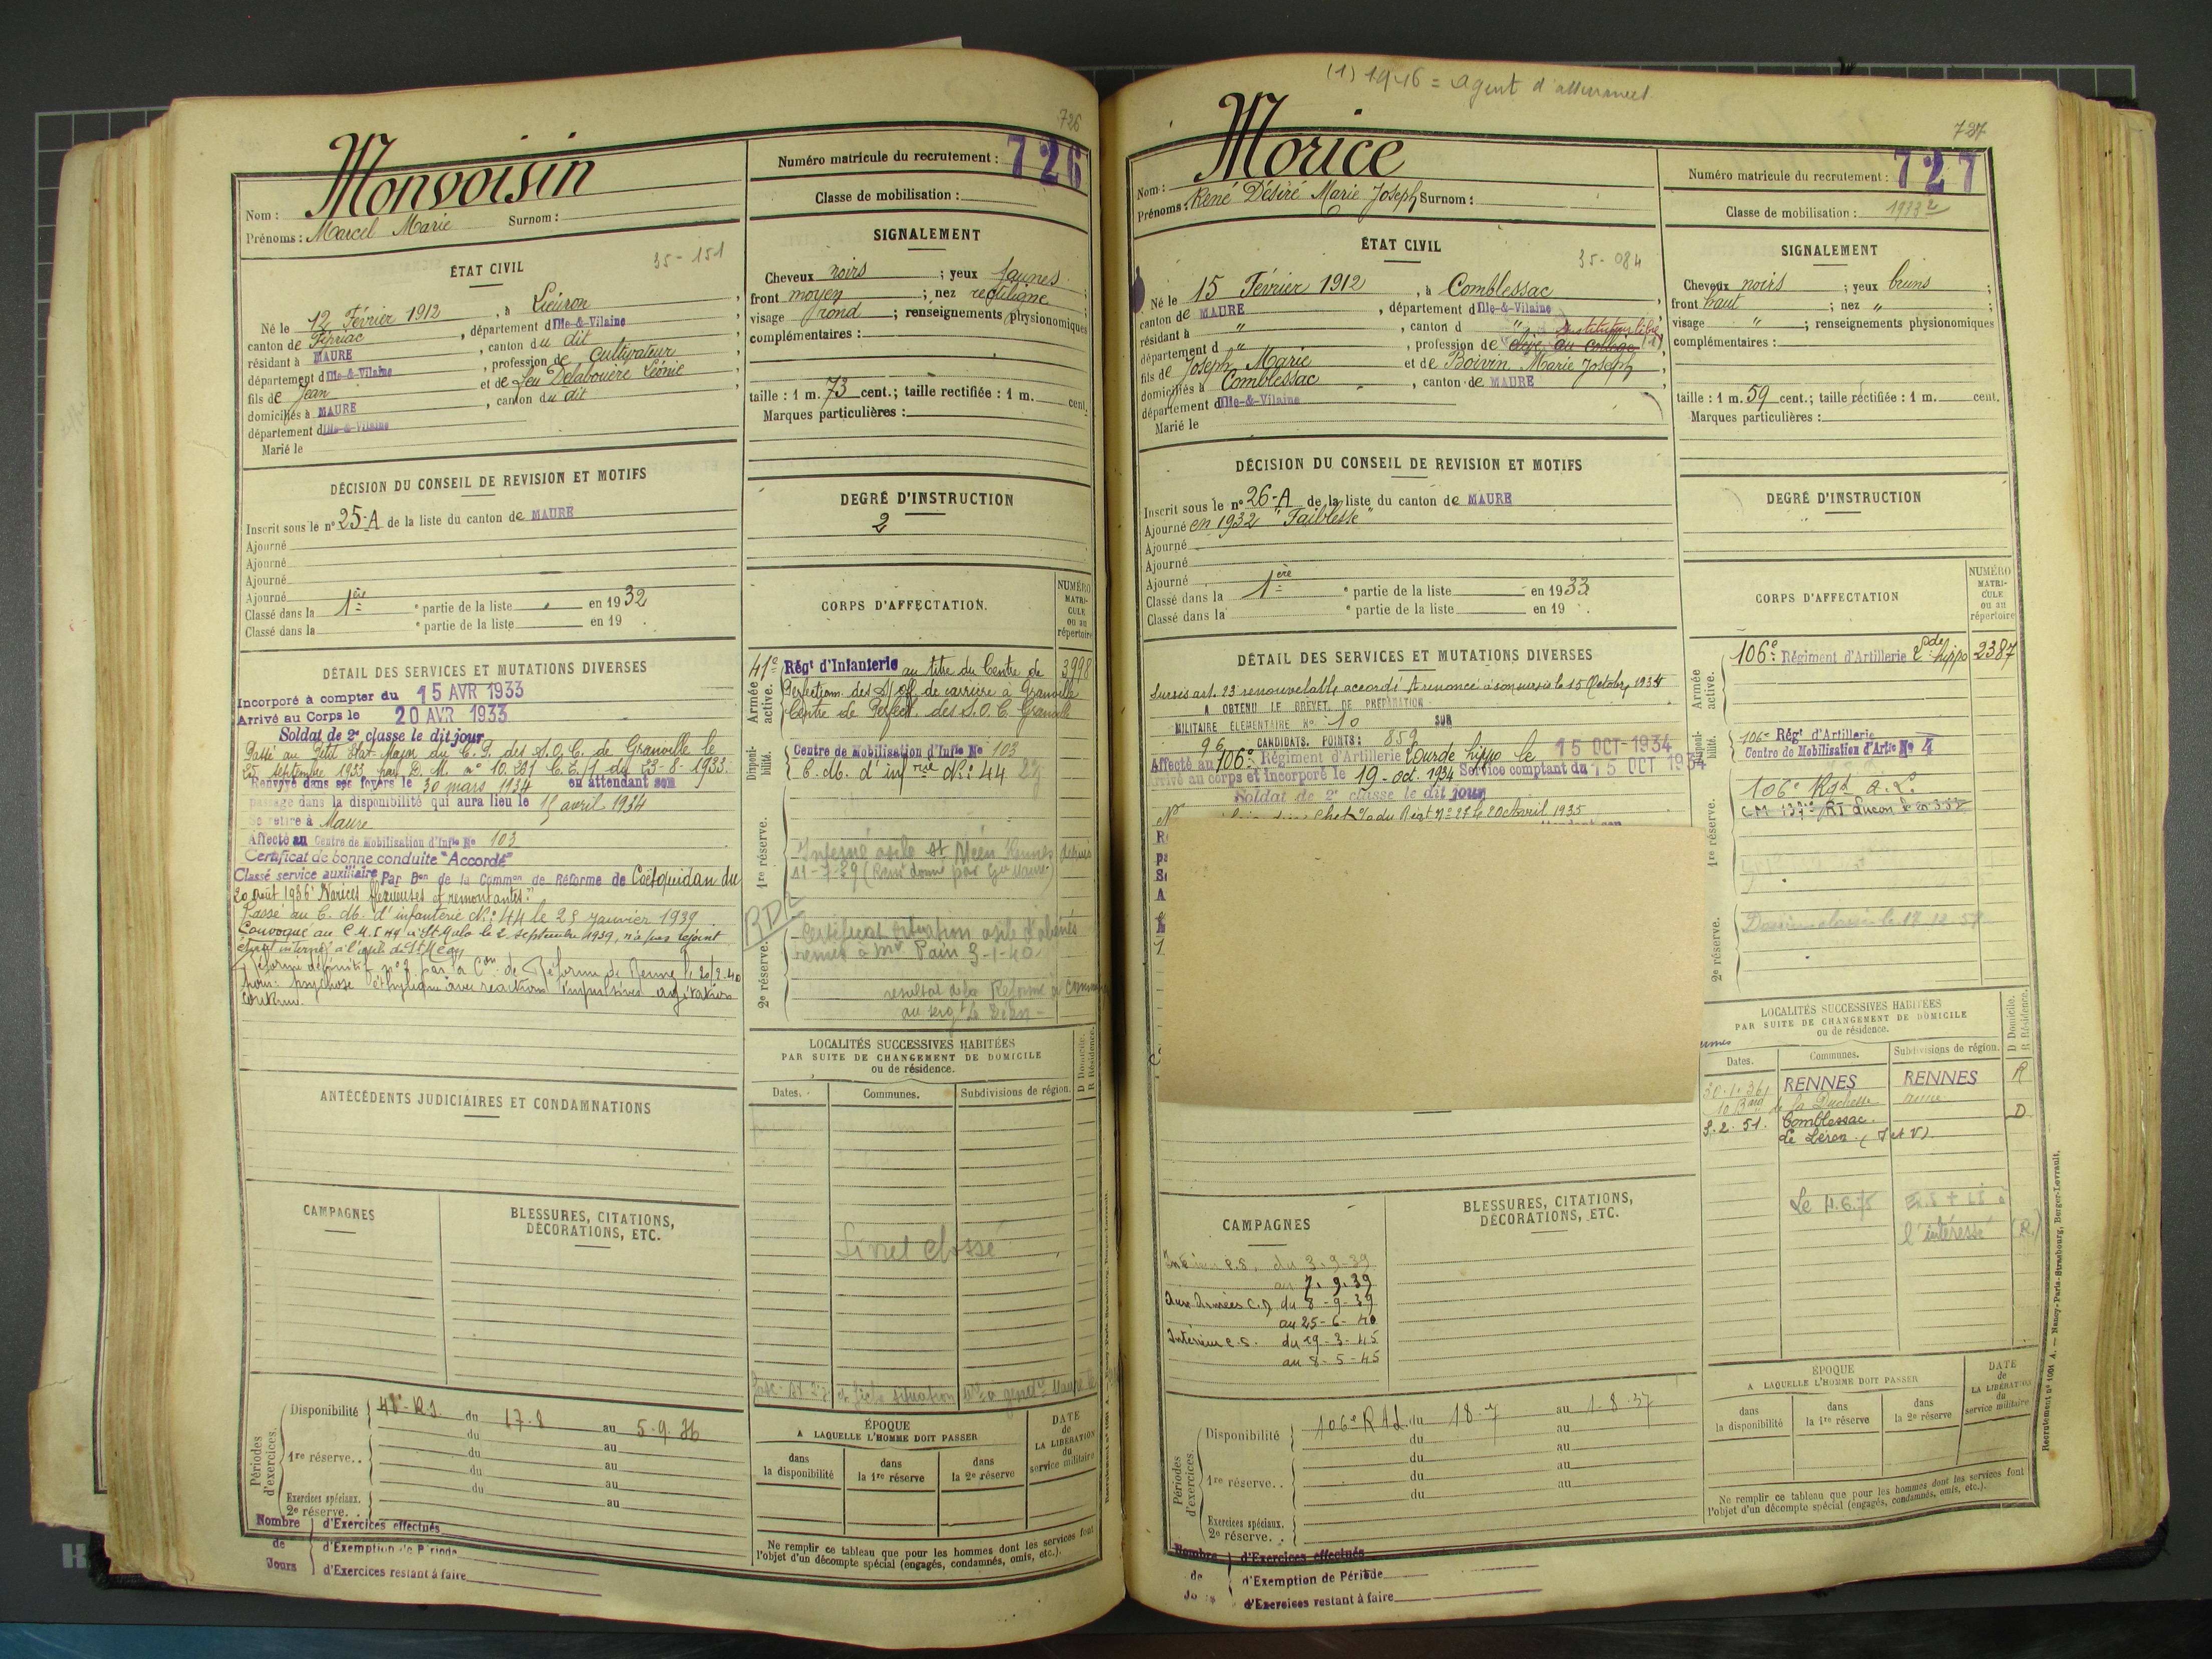 726
Monvoisin
Nom :
Prénoms : Marcel Marie Surnom :
Numéro matricule du recrutement : 726
Classe de mobilisation :
ÉTAT CIVIL
35-151
Né le 12 Février 1912, à Lieuron,
canton de Pipriac, département d Ille-&-Vilaine
résidant à MAURE, canton du dit
département d Ille-&-Vilaine, profession de cultivateur
fils de Jean et de feu Delabouëre Léonie,
domiciliés à MAURE, canton du dit
département d Ille-&-Vilaine
Marié le
SIGNALEMENT
Cheveux noirs ; yeux jaunes ;
front moyen ; nez rectiligne
visage rond ; renseignements physionomiques
complémentaires :
taille : 1 m. 73 cent.; taille rectifiée : 1 m. cent.
Marques particulières :
DÉCISION DU CONSEIL DE REVISION ET MOTIFS
Inscrit sous le n° 25-A de la liste du canton de MAURE
Ajourné
Ajourné
Ajourné
Ajourné
Classé dans la 1ère e partie de la liste en 1932
Classé dans la e partie de la liste en 19 .
DEGRÉ D'INSTRUCTION
2
CORPS D'AFFECTATION.
NUMÉRO
MATRI-
CULE
ou au
répertoire
DÉTAIL DES SERVICES ET MUTATIONS DIVERSES
Incorporé à compter du 15 AVR 1933
Arrivé au Corps le 20 AVR 1933
Soldat de 2e classe le dit jour
Passé au Petit Etat-Major du C.P. des S.O.C. de Granville le
25 septembre 1933 par D. M. n° 10.291 C.E./1 du 23-8-1933.
Renvoyé dans ses foyers le 30 mars 1934 en attendant son
passage dans la disponibilité qui aura lieu le 15 avril 1934
Se retire à Maure
Affecté au Centre de Mobilisation d'Infie No 103
Certificat de bonne conduite "Accordé"
Classé service auxiliaire Par Don de la Common de Réforme de Coëtquidan du
20 août 1936 "Varices flexueuses et remontantes."
Passé au C. M. d'infanterie N° 44 le 25 Janvier 1939
Convoqué au C.M.I. 44 à St Malo le 2 septembre 1939, n'a pas rejoint
étant interné à l'asile de St Méen
Réformé définitif n° 2 par la Con de Réforme de Rennes le 20/2.40
pour psychose éthylique avec réactions impulsives agitation
41e Régt d'Infanterie au titre du Centre de 3998
Perfectionn. des S/off. de carrière à Granville
Centre de Perfect. des S.O.C. Granville
Armée active.
Disponi-bilité.
Centre de Mobilisation d'Infie No 103
C. M. d'infrie N° 44
1re réserve.
Interné asile St Méen Rennes depuis
11-7-39 (Rens donné par Gie Maure)
RD2
2e réserve.
Certificat situation asile d'aliénés
remis à Mr Pain 3-1-40
resultat de la Reforme à
LOCALITÉS SUCCESSIVES HABITÉES
PAR SUITE DE CHANGEMENT DE DOMICILE
ou de résidence.
D Domicile.
R Résidence.
Dates. Communes. Subdivisions de région.
Livret classé
ANTÉCÉDENTS JUDICIAIRES ET CONDAMNATIONS
CAMPAGNES
BLESSURES, CITATIONS,
DÉCORATIONS, ETC.
Périodes d'exercices.
Disponibilité du 17.8 au 5.9.36
du au
1re réserve.. du au
du au
du au
Exercices spéciaux.
2e réserve. . au
Nombre de Jours
d'Exercices effectués
d'Exemption de Période
d'Exercices restant à faire
ÉPOQUE
A LAQUELLE L'HOMME DOIT PASSER
dans la disponibilité
dans la 1re réserve
dans la 2e réserve
DATE de LA LIBÉRATION du service militaire
Ne remplir ce tableau que pour les hommes dont les services font
l'objet d'un décompte spécial (engagés, condamnés, omis, etc.).
(1) 1946 = agent d'assurances
727
Morice
Nom :
Prénoms : René Désiré Marie Joseph Surnom :
Numéro matricule du recrutement : 727
Classe de mobilisation : 1933 2
ÉTAT CIVIL
35-084
Né le 15 Février 1912, à Comblessac,
canton de MAURE, département d Ille-&-Vilaine
résidant à ", canton d "
Instituteur libre (1)
département d ", profession de élève au collège,
fils de Joseph Marie et de Boivin Marie Joseph,
domiciliés à Comblessac, canton de MAURE
département d Ille-&-Vilaine
Marié le
SIGNALEMENT
Cheveux noirs ; yeux bruns ;
front haut ; nez " ;
visage " ; renseignements physionomiques
complémentaires :
taille : 1 m. 59 cent.; taille rectifiée : 1 m. cent.
Marques particulières :
DÉCISION DU CONSEIL DE REVISION ET MOTIFS
Inscrit sous le n° 26-A de la liste du canton de MAURE
Ajourné en 1932 "Faiblesse"
Ajourné
Ajourné
Ajourné
Classé dans la 1ère e partie de la liste en 1933
Classé dans la e partie de la liste en 19 .
DEGRÉ D'INSTRUCTION
CORPS D'AFFECTATION
NUMÉRO
MATRI-
CULE
ou au
répertoire
DÉTAIL DES SERVICES ET MUTATIONS DIVERSES
Sursis art. 23 renouvelable accordé. A renoncé à son sursis le 15 Octobre 1934
A OBTENU LE BREVET DE PRÉPARATION
MILITAIRE ÉLÉMENTAIRE No 10 SUR
96 CANDIDATS. POINTS: 859
Affecté au 106e Régiment d'Artillerie Lourde hippo le 15 OCT 1934
Arrivé au corps et incorporé le 19-oct. 1934 Service comptant du 15 OCT 1934
Soldat de 2e classe le dit jour
du Régt N° 27 le 20 Avril 1935
Armée active.
106e Régiment d'Artillerie Lde hippo 2387
Disponi-bilité.
106e Régt d'Artillerie
Centre de Mobilisation d'Artie No 4
1re réserve.
106e Rgt A. L.
2e réserve.
LOCALITÉS SUCCESSIVES HABITÉES
PAR SUITE DE CHANGEMENT DE DOMICILE
ou de résidence.
D Domicile.
R Résidence.
Dates. Communes. Subdivisions de région.
30.1.36 RENNES RENNES R
10 Bard de la Duchesse Anne
3.2.51. Comblessac D
Le Léron. (I et V)
Le
l'intéressé (R)
CAMPAGNES
BLESSURES, CITATIONS,
DÉCORATIONS, ETC.
Intérieur C.S. du 3.9.39
au 7.9.39
Aux Armées C.D du 8-9-39
au 25-6-40
Intérieur C.S. du 29-3-45
au 8-5-45
Périodes d'exercices.
Disponibilité 106e RAL du 18.7 au 1.8.37
du au
1re réserve.. du au
du au
du au
Exercices spéciaux.
2e réserve. .
Nombre de Jours
d'Exercices effectués
d'Exemption de Période
d'Exercices restant à faire
ÉPOQUE
A LAQUELLE L'HOMME DOIT PASSER
dans la disponibilité
dans la 1re réserve
dans la 2e réserve
DATE de LA LIBÉRATION du service militaire
Ne remplir ce tableau que pour les hommes dont les services font
l'objet d'un décompte spécial (engagés, condamnés, omis, etc.).
Recrutement n° 1001 A. — Nancy-Paris-Strasbourg, Berger-Levrault.